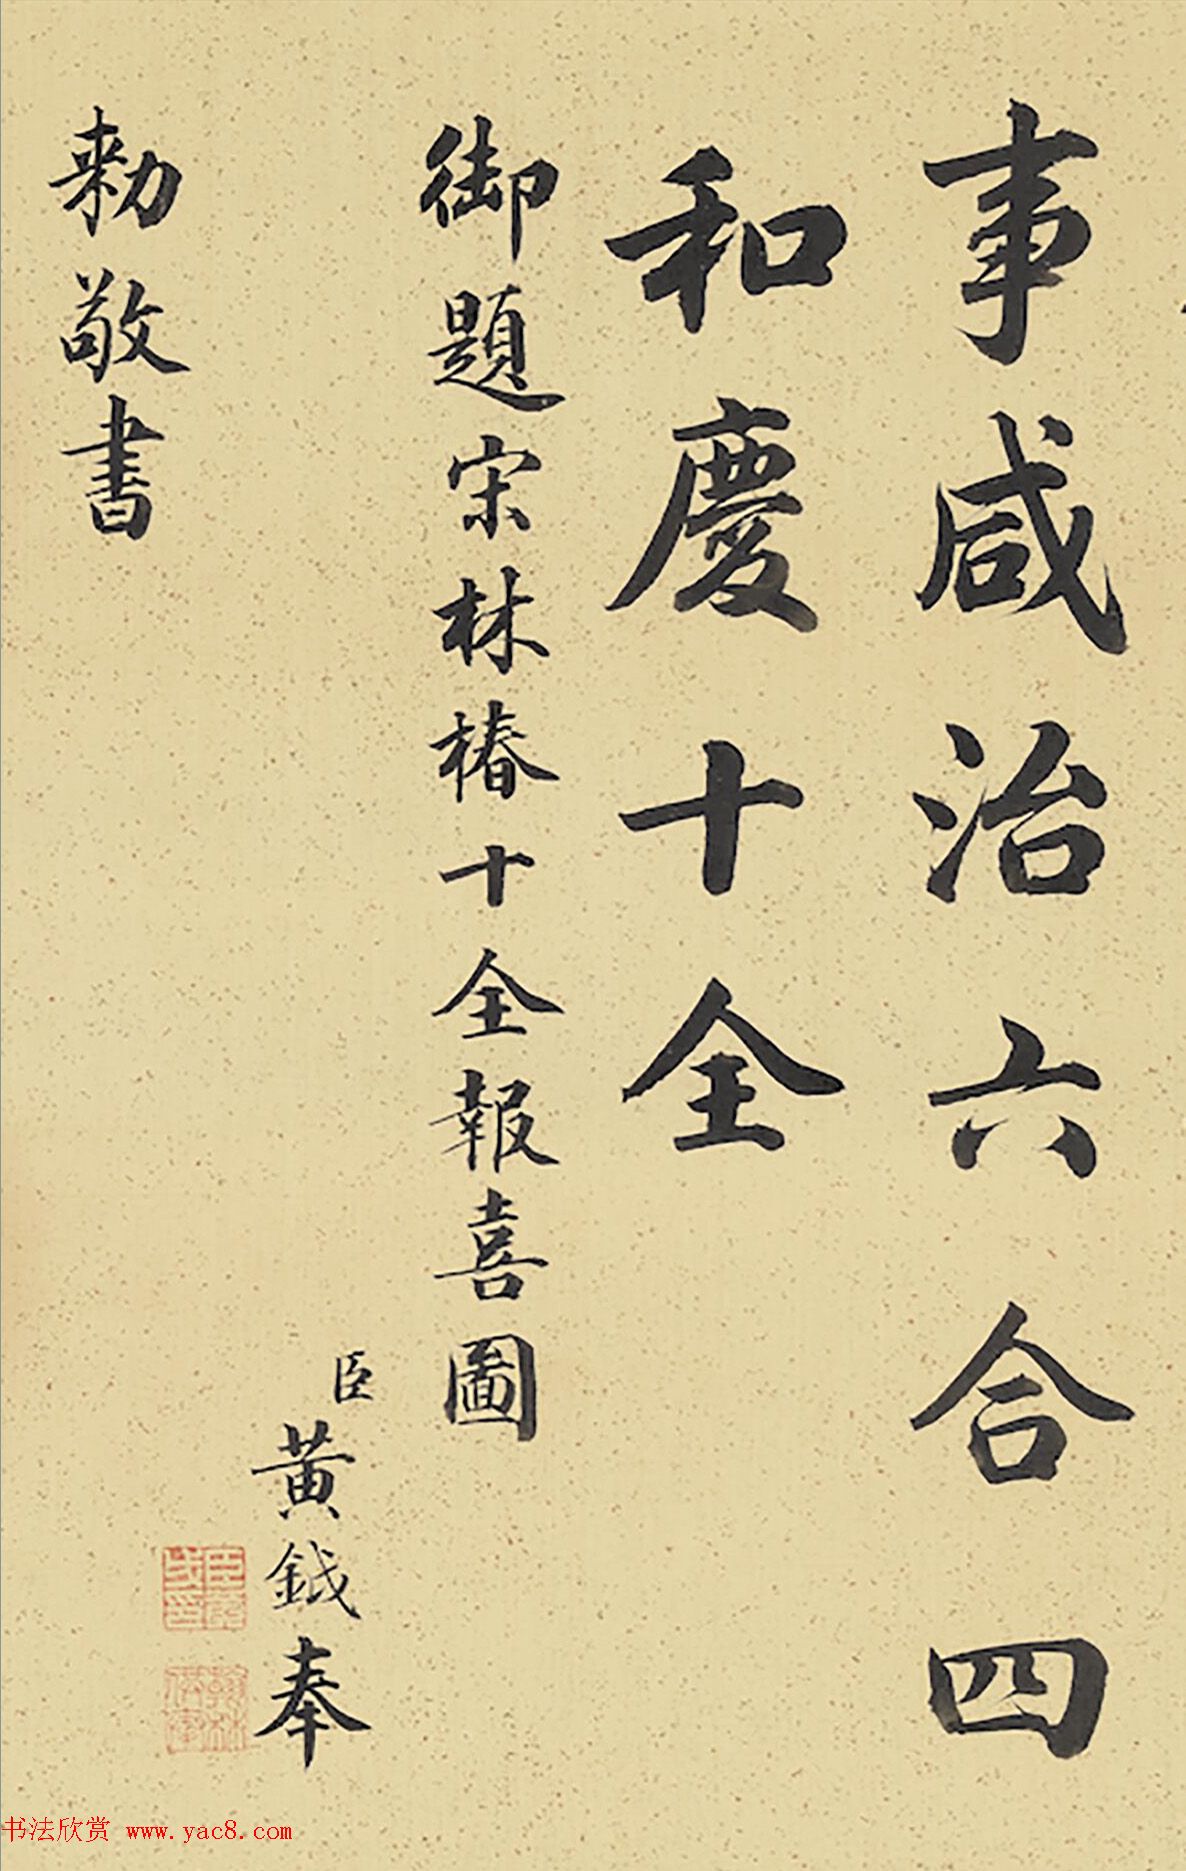 事咸治六合四
和慶十全
御題宋林椿十全報喜圖
臣黃鉞奉
勑敬書
书法欣赏 www.yac8.com